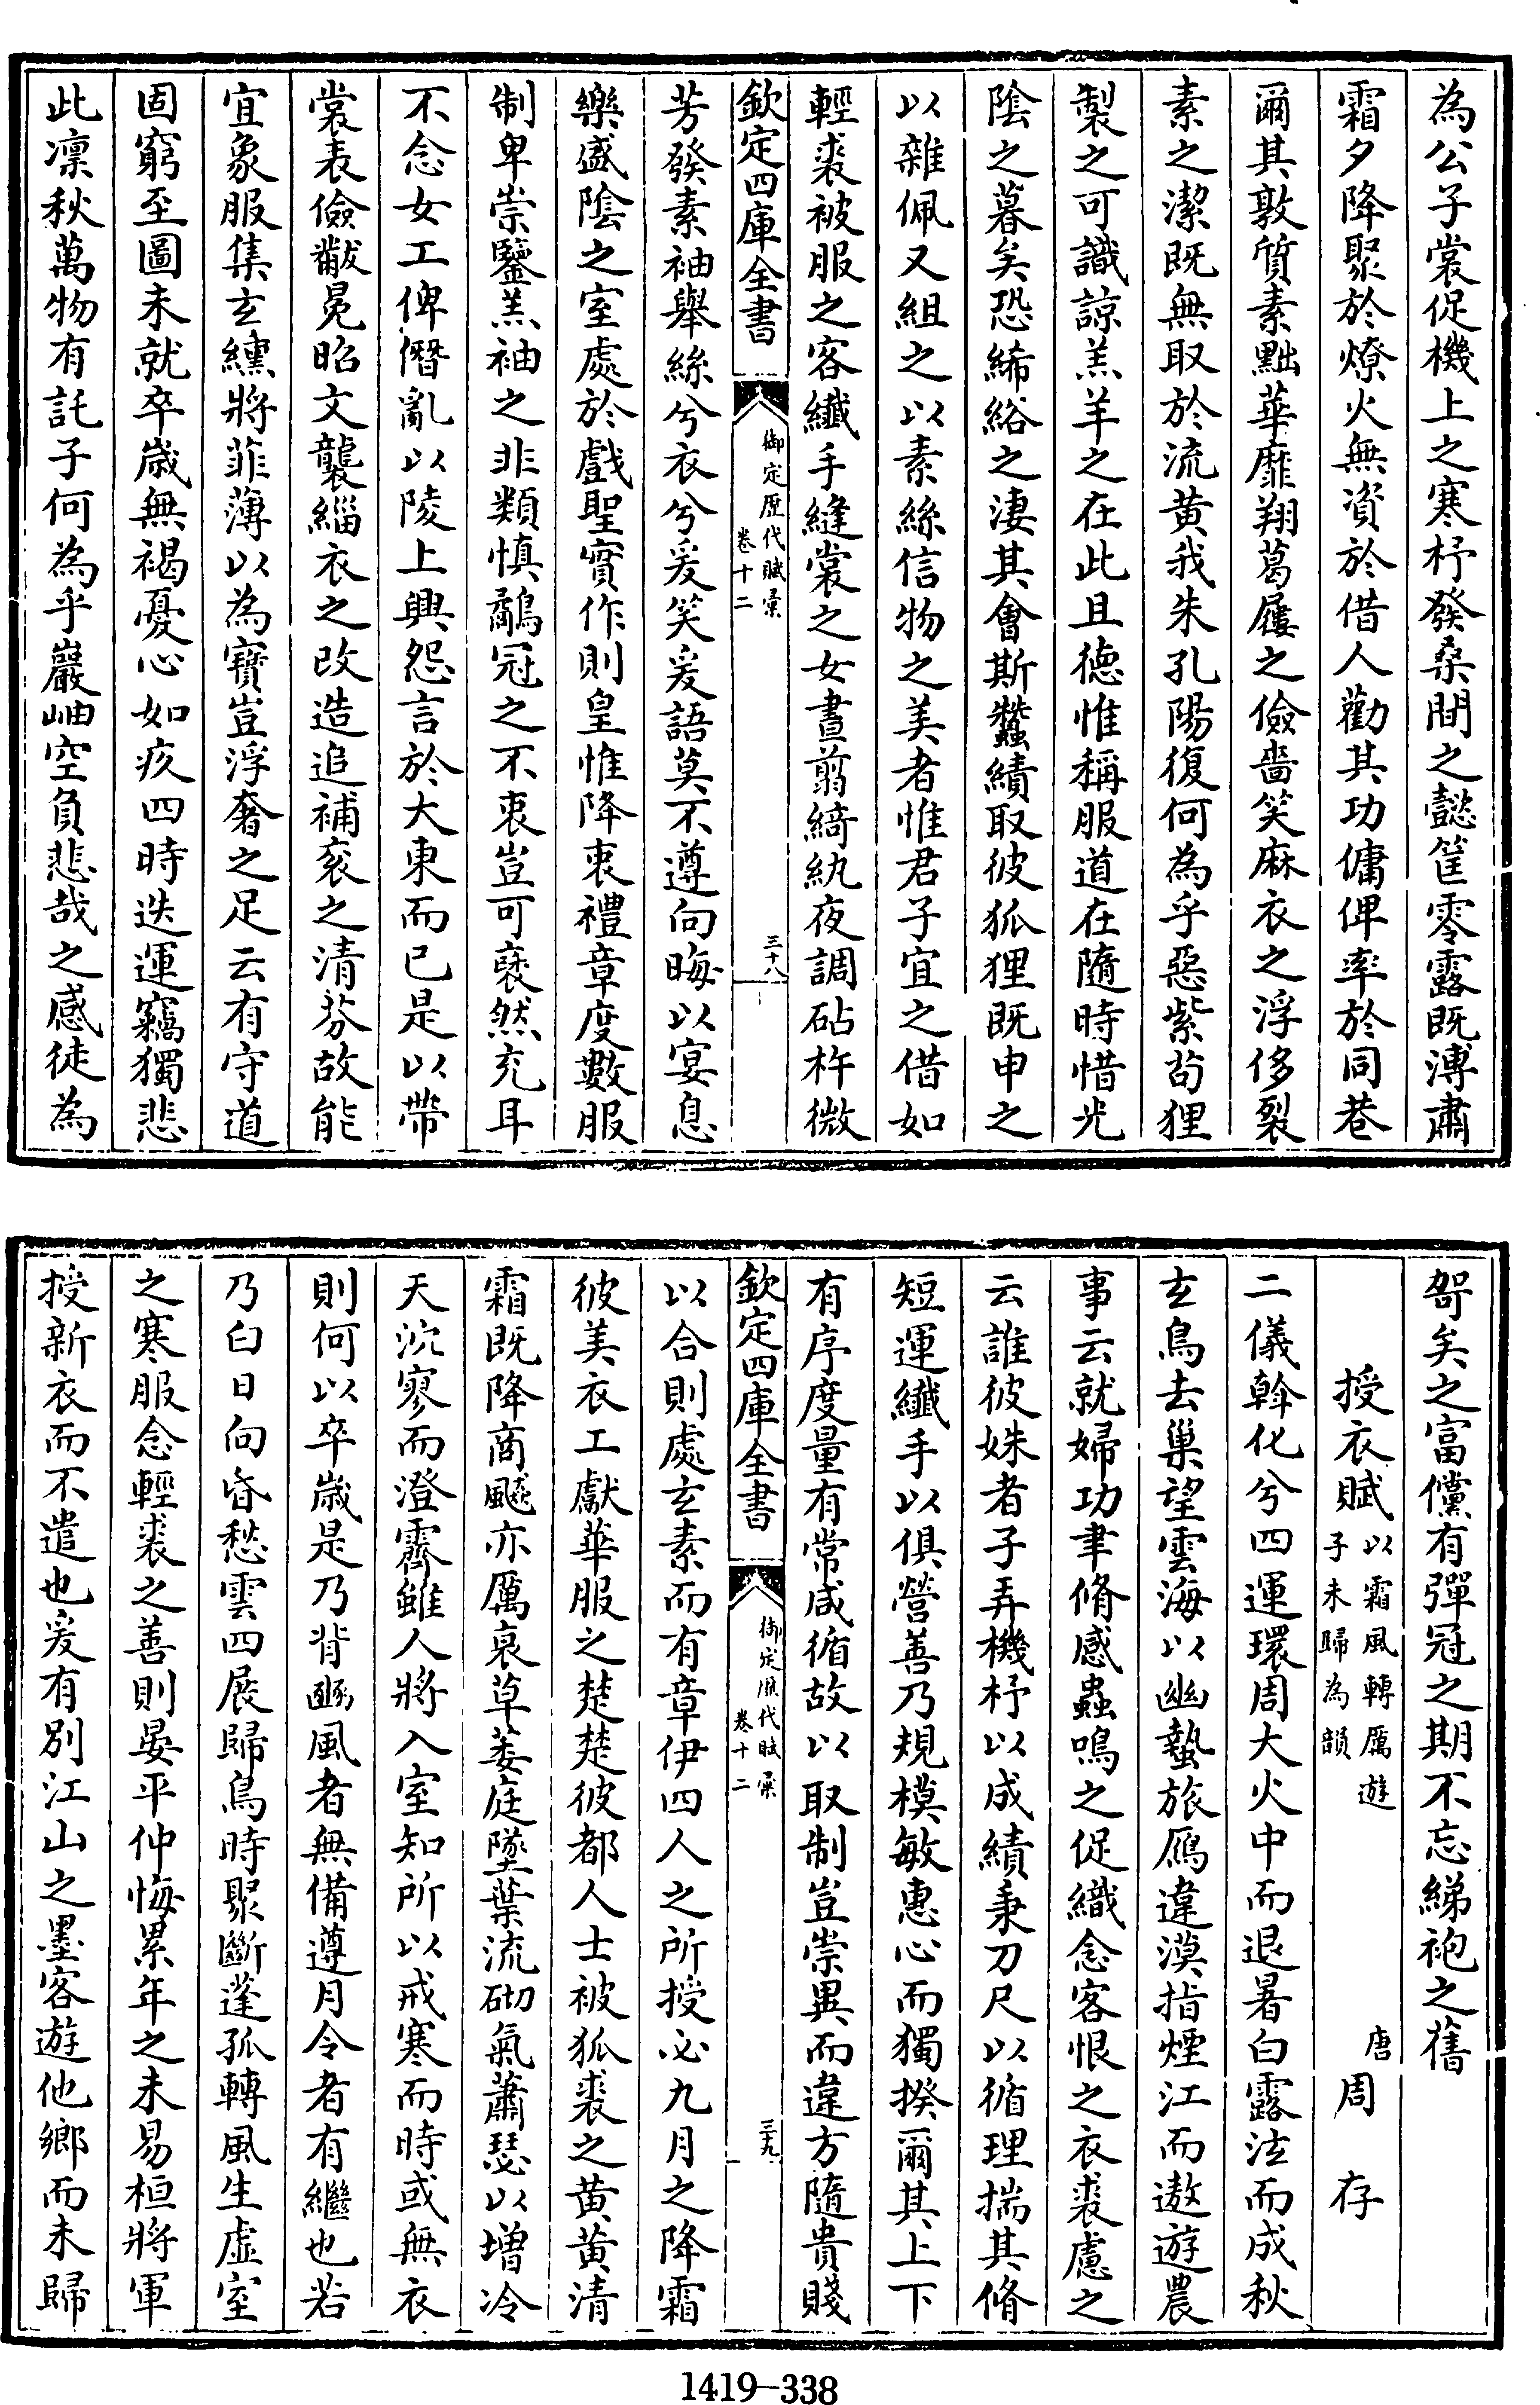 為公子裳促機上之寒杼發桑間之懿筐零露既漙肅
霜夕降聚於燎火無資於借人勸其功傭俾率於同巷
爾其敦質素黜華靡翔葛屨之儉嗇笑麻衣之浮侈裂
素之潔既無取於流黄我朱孔陽復何為乎惡紫茍狸
製之可識諒羔羊之在此且徳惟稱服道在隨時惜光
陰之暮矣恐絺綌之淒其會斯蠶績取彼狐狸既申之
以雜佩又組之以素絲信物之美者惟君子宜之借如
輕裘被服之客纖手縫裳之女晝翦綺紈夜調砧杵微
欽定四庫全書
御定歴代賦彚
卷十二
三十八
芳發素袖舉絲兮衣兮爰笑爰語莫不遵向晦以宴息
樂盛陰之室處於戲聖實作則皇惟降衷禮章度數服
制卑崇鑒羔袖之非類慎鷸冠之不衷豈可褎然充耳
不念女工俾僭亂以陵上興怨言於大東而已是以帶
裳表儉黻冕昭文襲緇衣之改造追補衮之清芬故能
宜象服集玄纁將菲薄以為寶豈浮奢之足云有守道
固窮至圖未就卒歳無褐憂心如疚四時迭運竊獨悲
此凛秋萬物有託子何為乎巖岫空負悲哉之感徒為
哿矣之富儻有彈冠之期不忘綈袍之舊
授衣賦以霜風轉厲遊子未歸為韻
唐周存
二儀斡化兮四運環周大火中而退暑白露泫而成秋
玄鳥去巢望雲海以幽蟄旅鴈違漠指煙江而遨遊農
事云就婦功聿脩感蟲鳴之促織念客恨之衣裘慮之
云誰彼姝者子弄機杼以成績秉刀尺以循理揣其脩
短運纖手以俱營善乃規模敏惠心而獨揆爾其上下
有序度量有常咸循故以取制豈崇異而違方隨貴賤
欽定四庫全書
御定歴代賦彚
卷十二
三十九
以合則處玄素而有章伊四人之所授必九月之降霜
彼美衣工獻華服之楚楚彼都人士被狐裘之黄黄清
霜既降商飇亦厲哀草萎庭墜葉流砌氣蕭瑟以增冷
天泬寥而澄霽雖人將入室知所以戒寒而時或無衣
則何以卒歳是乃背豳風者無備遵月令者有繼也若
乃白日向昏愁雲四展歸鳥時聚斷蓬孤轉風生虚室
之寒服念輕裘之善則晏平仲悔累年之未易桓將軍
授新衣而不遣也爰有别江山之墨客遊他鄉而未歸
1419-338